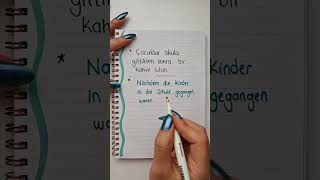 Çocuklar okula
gittikten sonra bir
kahve içtim.
Nachdem die Kinder
in die Schule gegangen
waren